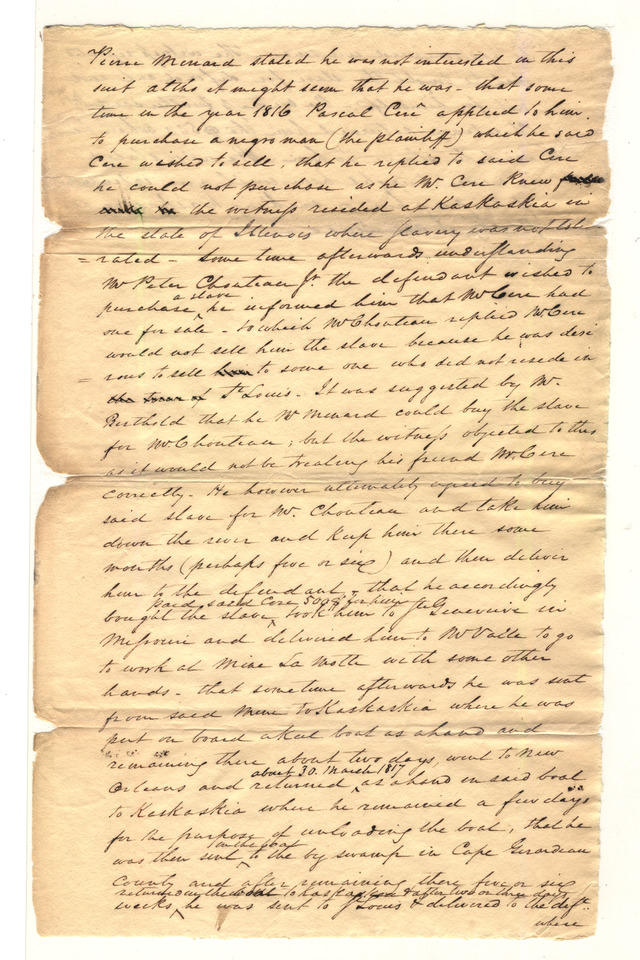 Pierre Menard stated he was not interested in this
suit altho it might seem that he was - that some
time in the year 1816 Pascal Ceré applied to him
to purchase a negro man (the plaintiff) which he said
Cere wished to sell, that he replied to said Cere
he could not purchase as he Mr. Cere knew
the witness resided at Kaskaskia in
the state of Illinois where slavery was not tole
=rated - some time afterwards understanding
Mr Peter Chouteau Jr. the defendant wished to
purchase a slave he informed him that Mr Cere had
one for sale - to which Mr Chouteau replied Mr Cere
would not sell him the slave because he was desi
=rous to sell to some one who did not reside in
St Louis - It was suggested by Mr.
Berthold that he Mr Menard could buy the slave
for Mr Chouteau; but the witness objected to this
as it would not be treating his friend Mr Cere
correctly - He however ultimately agreed to buy
said slave for Mr. Chouteau and take him
down the river and keep him there some
months (perhaps five or six) and then deliver
him to the defendant - that he accordingly
paid said Cere 500$ for him
bought the slave took him to St Genevieve in
Missouri and delivered him to Mr Valle to go
to work at Mine La Motte with some other
hands - that sometime afterwards he was sent
from said Mine to Kaskaskia where he was
put on board a keel boat as a hand and
remaining there about two days, went to New
about 30. March 1817
Orleans and returned as a hand in said boat
to Kaskaskia where he remained a few days
for the purpose of unloading the boat, that he
in the boat
was then sent to the big swamp in Cape Girardeau
County and after remaining there five or six
returned in the boat to Kaskaskia & after two or three days
weeks he was sent to St Louis & delivered to the deft.
where